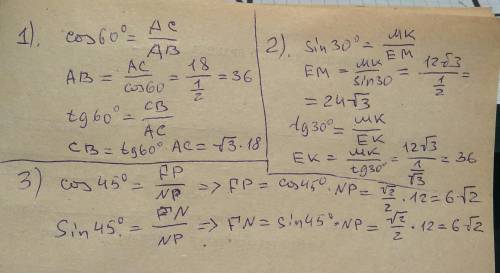 1). cos60° = AC/AB
AB = AC/cos60 = 18/(1/2) = 36
tg60° = CB/AC
CB = tg60° · AC = √3 · 18
2). sin30° = MK/EM
EM = MK/sin30 = 12√3/(1/2) =
= 24√3
tg30° = MK/EK
EK = MK/tg30° = 12√3/(1/√3) = 36
3) cos45° = FP/NP => FP = cos45° · NP = √2/2 · 12 = 6√2
Sin45° = FN/NP => FN = Sin45° · NP = √2/2 · 12 = 6√2